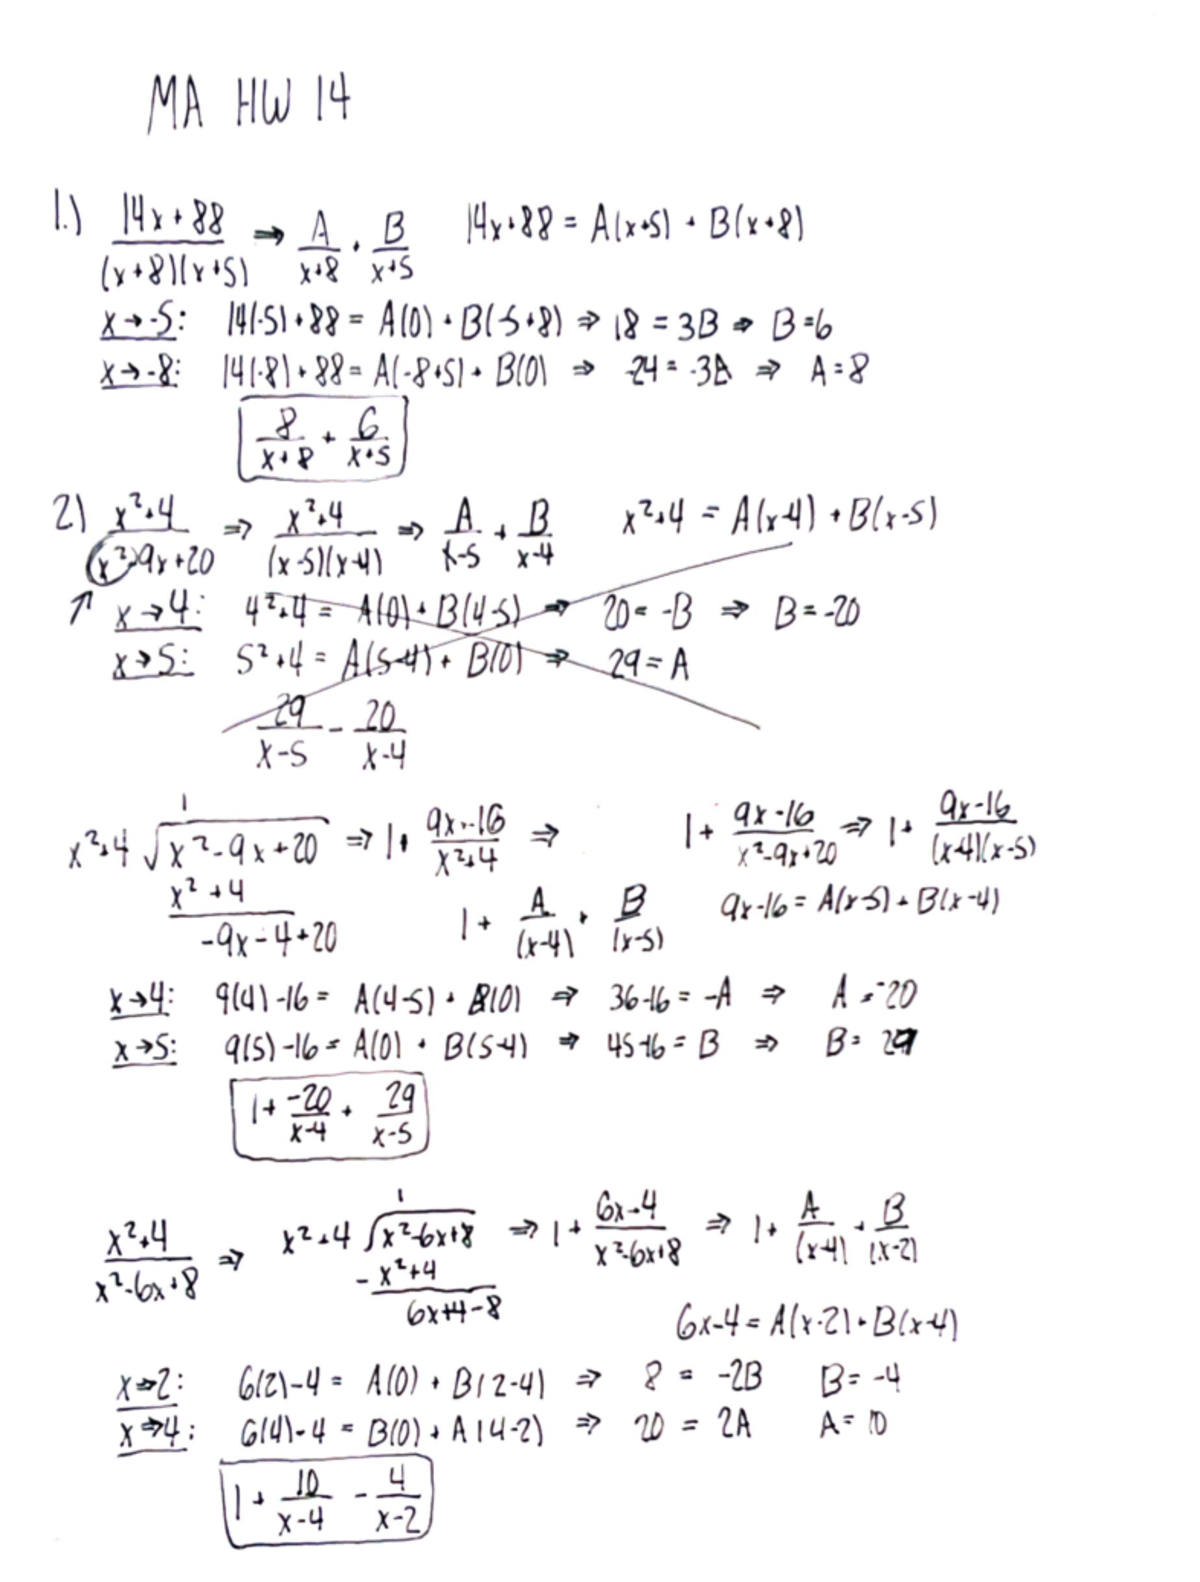 MA HW 14
1.) (14x+88)/((x+8)(x+5)) ⇒ A/(x+8) + B/(x+5) 14x+88 = A(x+5) + B(x+8)
x→-5: 14(-5)+88 = A(0) + B(-5+8) ⇒ 18 = 3B ⇒ B=6
x→-8: 14(-8)+88 = A(-8+5) + B(0) ⇒ -24 = -3A ⇒ A=8
8/(x+8) + 6/(x+5)
2) (x²+4)/(x²-9x+20) ⇒ (x²+4)/((x-5)(x-4)) ⇒ A/(x-5) + B/(x-4) x²+4 = A(x-4) + B(x-5)
↑ x→4: 4²+4 = A(0) + B(4-5) ⇒ 20 = -B ⇒ B=-20
x→5: 5²+4 = A(5-4) + B(0) ⇒ 29 = A
29/(x-5) - 20/(x-4)
1
x²+4 √(x²-9x+20) ⇒ 1+ (9x-16)/(x²+4) ⇒ 1+ (9x-16)/(x²-9x+20) ⇒ 1+ (9x-16)/((x-4)(x-5))
x²+4
-9x-4+20 1 + A/(x-4) + B/(x-5) 9x-16 = A(x-5) + B(x-4)
x→4: 9(4)-16 = A(4-5) + B(0) ⇒ 36-16 = -A ⇒ A = -20
x→5: 9(5)-16 = A(0) + B(5-4) ⇒ 45-16 = B ⇒ B = 29
1+ -20/(x-4) + 29/(x-5)
1
(x²+4)/(x²-6x+8) ⇒ x²+4 √(x²-6x+8) ⇒ 1+ (6x-4)/(x²-6x+8) ⇒ 1+ A/(x-4) + B/(x-2)
- x²+4
6x+4-8 6x-4 = A(x-2) + B(x-4)
x→2: 6(2)-4 = A(0) + B(2-4) ⇒ 8 = -2B B=-4
x→4: 6(4)-4 = B(0) + A(4-2) ⇒ 20 = 2A A=10
1+ 10/(x-4) - 4/(x-2)